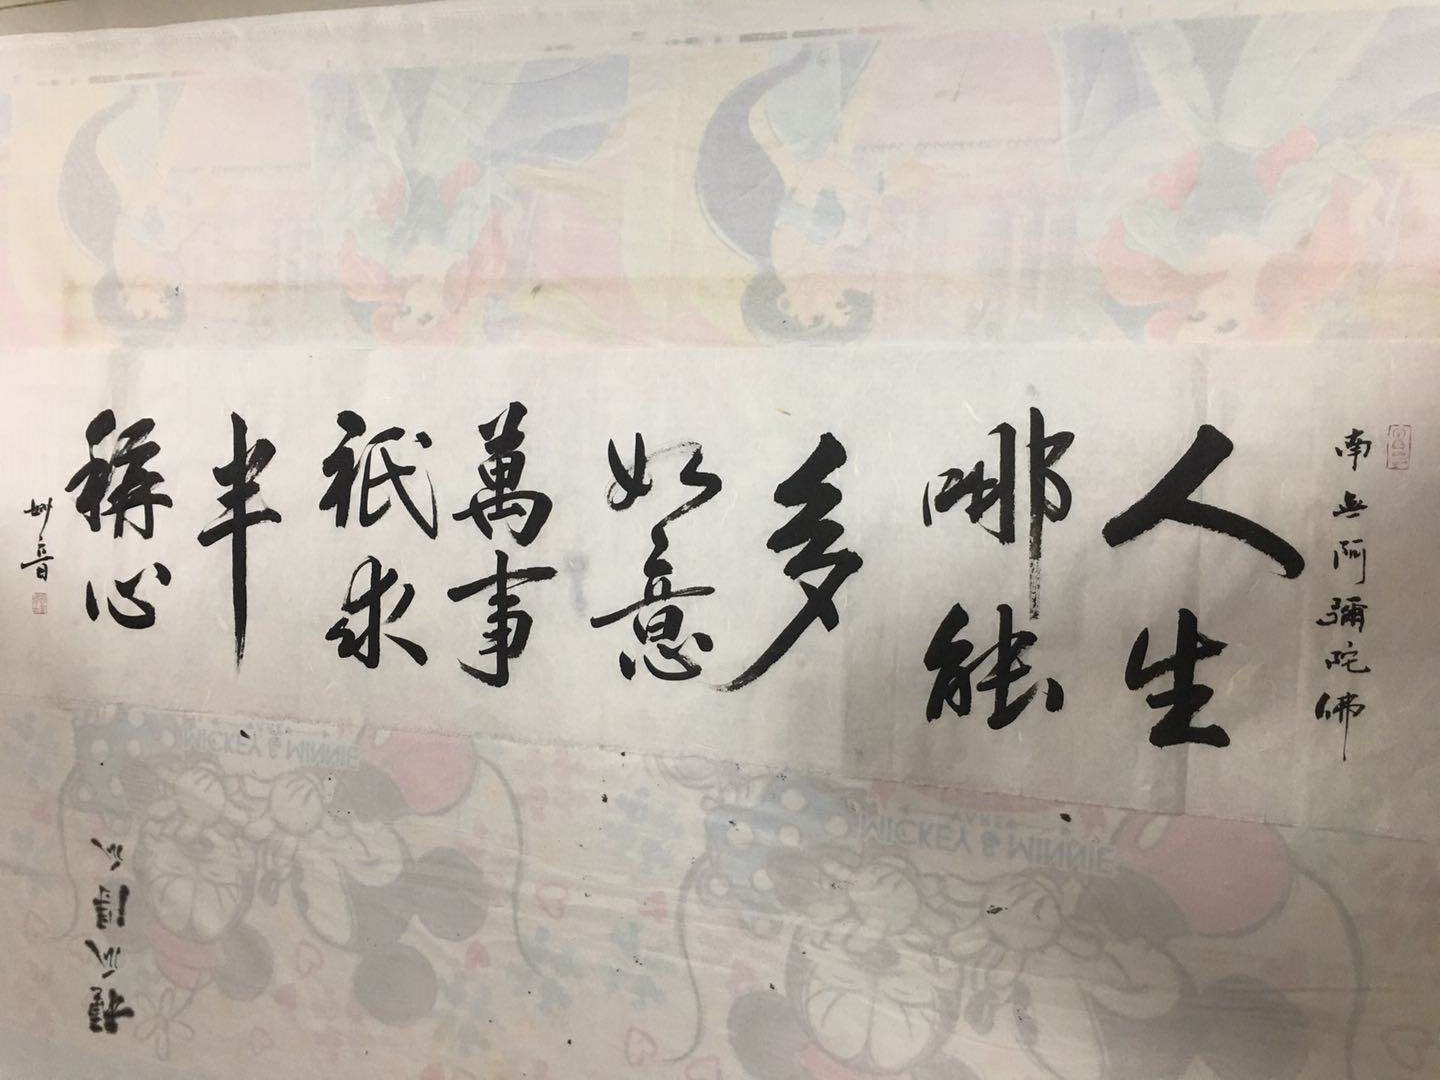 南無阿彌陀佛
人生
哪能
多
如意
萬事
祇求
半
稱心
妙音
MICKEY & MINNIE
MICKEY & MINNIE